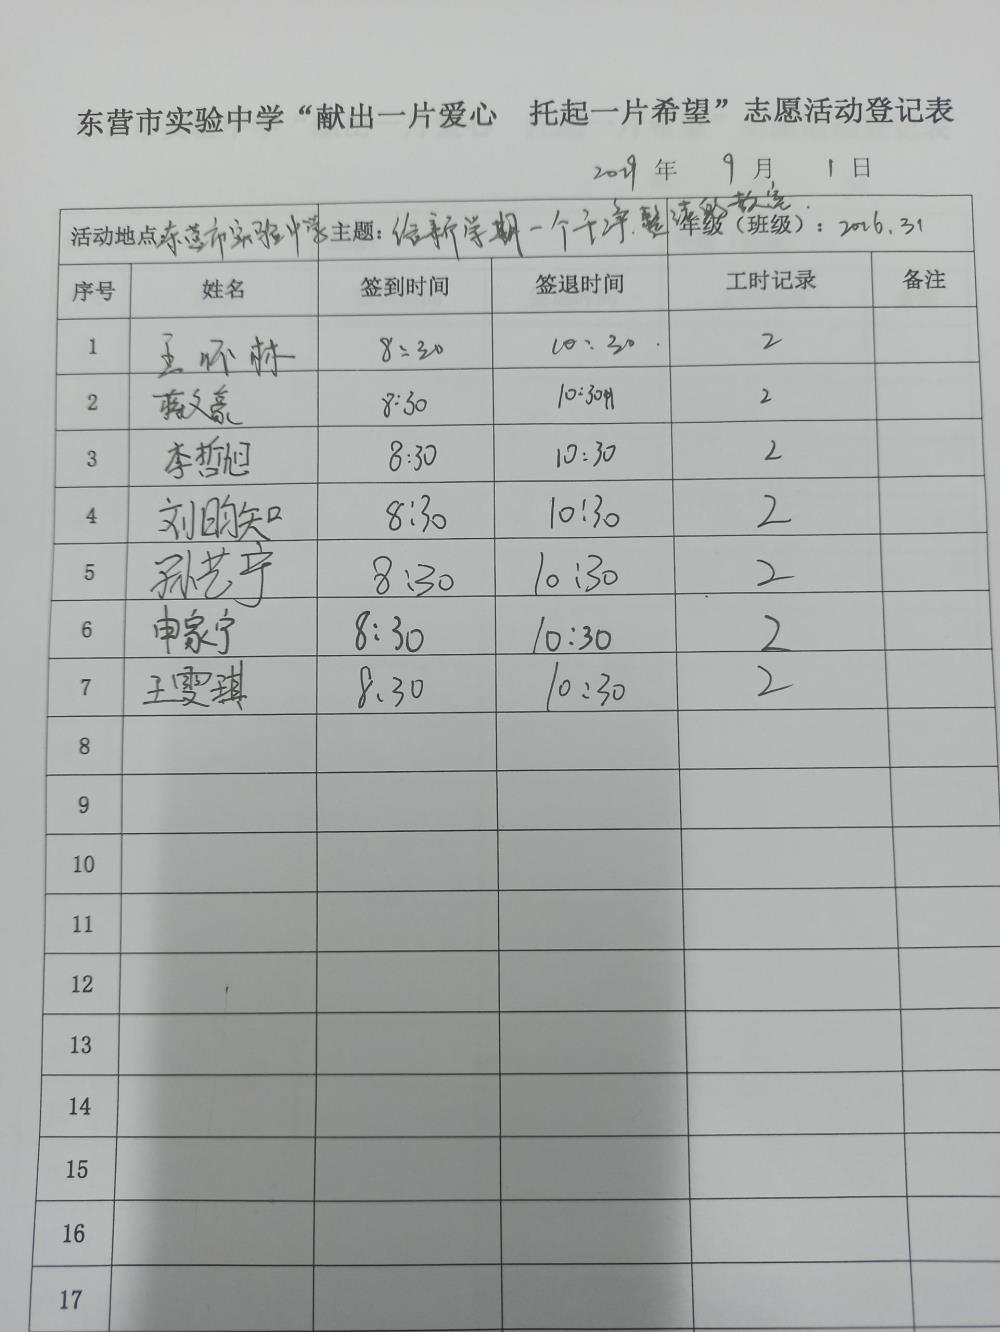 东营市实验中学“献出一片爱心 托起一片希望”志愿活动登记表
2019 年 9 月 1 日
活动地点 东营市实验中学 主题：给新学期一个干净.整洁的教室. 年级（班级）：2016.31
序号 姓名 签到时间 签退时间 工时记录 备注
1 王怀林 8:30 10:30. 2
2 蒋文豪 8:30 10:30 2
3 李哲旭 8:30 10:30 2
4 刘昀知 8:30 10:30 2
5 孙艺宁 8:30 10:30 2
6 申家宁 8:30 10:30 2
7 王雯琪 8.30 10:30 2
8
9
10
11
12
13
14
15
16
17